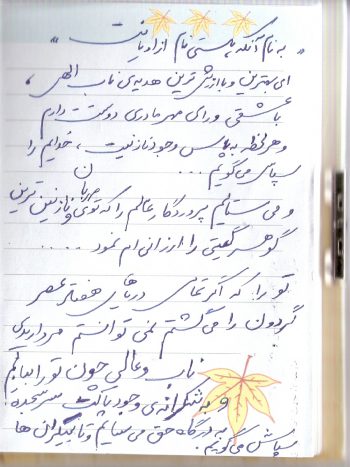 « به نام آنکه هستی نام از او یافت »
ای بهترین و با ارزش ترین هدیه ی ناب الهی ،
با عشقی ورای مهر مادری دوستت دارم
و هر لحظه به پاس وجود نازنینت ، خدایم را
سپاس می گویم ...
و می ستایم پروردگار عالم را که توی نازنین ترین
گوهر گیتی را ارزانی ام نمود .....
تو را که اگر تمامی دریاهای هفتگانه
گردون را می گشتم نمی توانستم مرواریدی
ناب و عالی چون تو را بیابم
و به شکرانه ی وجود پاکت سر سجده
به درگاه حق می سایم و تا بیکران ها
سپاسش می گویم.